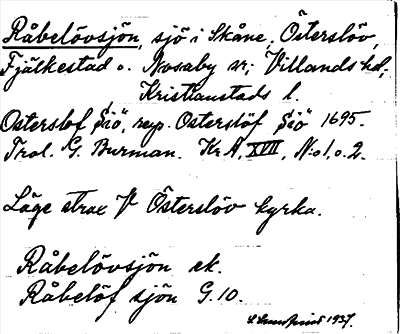 Råbelövsjön, sjö i Skåne, Österslöv,
Fjälkestad o. Nosaby sn; Villands hd,
Kristianstads l.
Osterslof Siö, resp. Osterslöf Siö 1695.
Trol. G. Burman. Kr A, XVII, N:o 1, o. 2.
Läge strax V Österslöv kyrka.
Råbelövsjön ek.
Råbelöf sjön G.10.
1927.